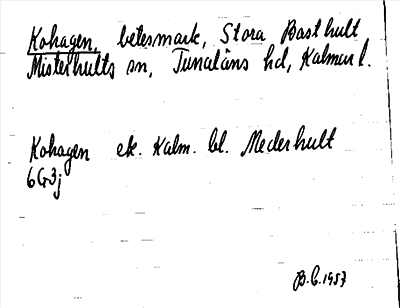 Kohagen, betesmark, Stora Basthult
Misterhults sn, Tunaläns hd, Kalmar l.
Kohagen ek. Kalm. bl. Mederhult
6G3j
B.C. 1957